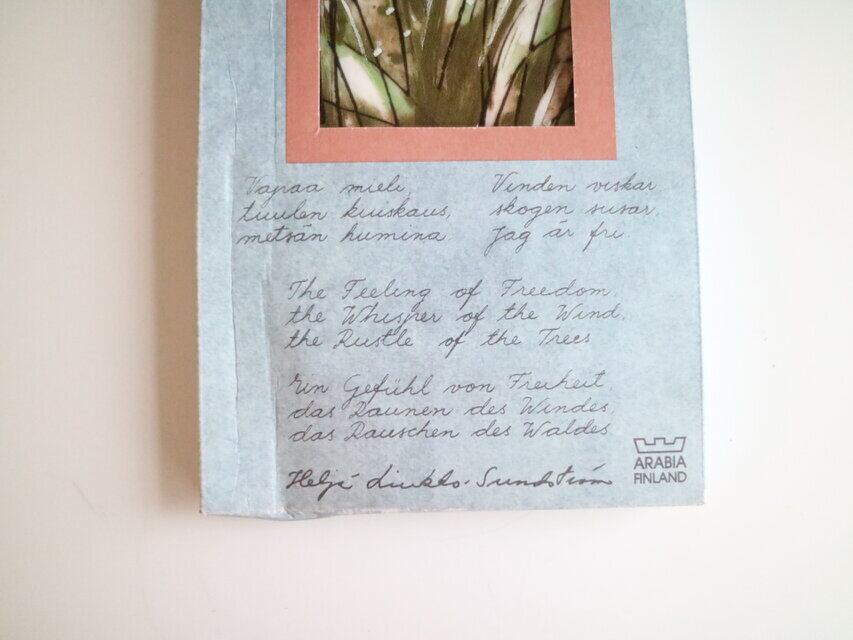 Vapaa mieli,
tuulen kuiskaus,
metsän humina
Vinden viskar,
skogen susar,
Jag är fri
The Feeling of Freedom,
the Whisper of the Wind,
the Rustle of the Trees
Ein Gefühl von Freiheit,
das Raunen des Windes,
das Rauschen des Waldes
Heljä Liukko-Sundström
ARABIA
FINLAND